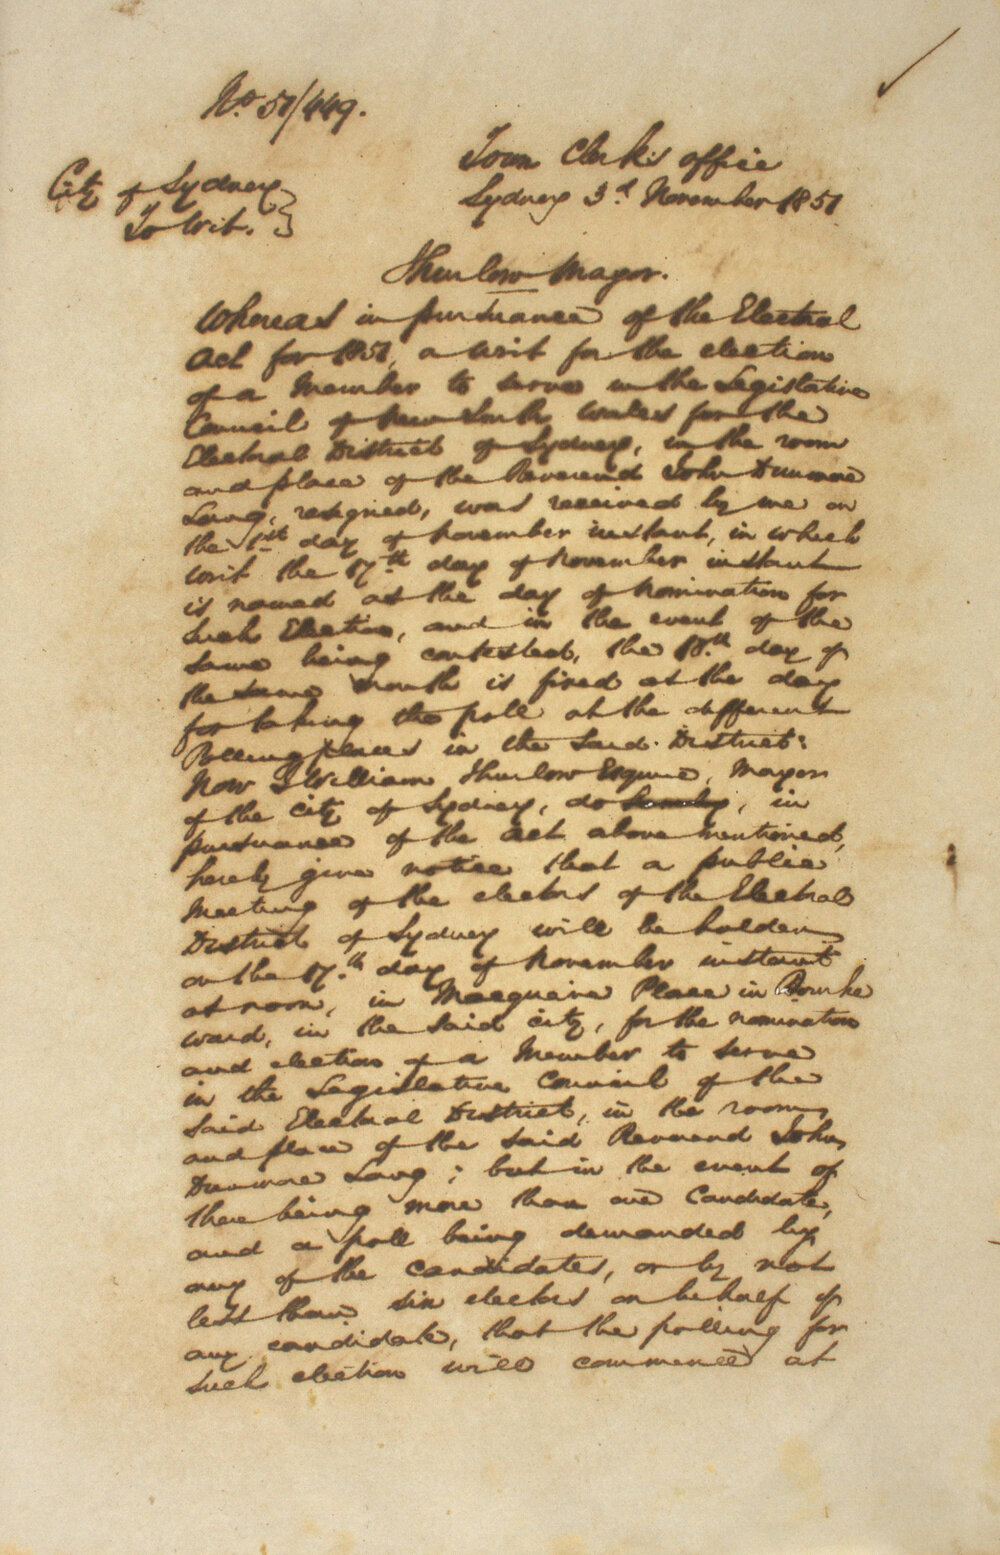 No. 51/449.
Town Clerk's office
Sydney 3d. November 1851
City of Sydney }
To Wit. }
Thurlow Mayor.
Whereas in pursuance of the Electoral
Act for 1851, a writ for the election
of a Member to serve in the Legislative
Council of New South Wales for the
Electoral District of Sydney, in the room
and place of the Reverend John Dunmore
Lang, resigned, was received by me on
the 1st day of November instant, in which
writ the 17th day of November instant
is named as the day of Nomination for
such Election, and in the event of the
same being contested, the 18th day of
the same month is fixed as the day
for taking the poll at the different
Polling places in the said District:
Now I William Thurlow Esquire, Mayor
of the city of Sydney, do hereby, in
pursuance of the Act above mentioned,
hereby give notice that a public
Meeting of the electors of the Electoral
District of Sydney will be holden
on the 17th day of November instant
at noon, in Macquarie Place in Bourke
ward, in the said city, for the nomination
and election of a Member to serve
in the Legislative Council of the
said Electoral District, in the room
and place of the said Reverend John
Dunmore Lang; but in the event of
there being more than one Candidate,
and a poll being demanded by
any of the candidates, or by not
less than six electors on behalf of
any candidate, that the polling for
such election will commence at